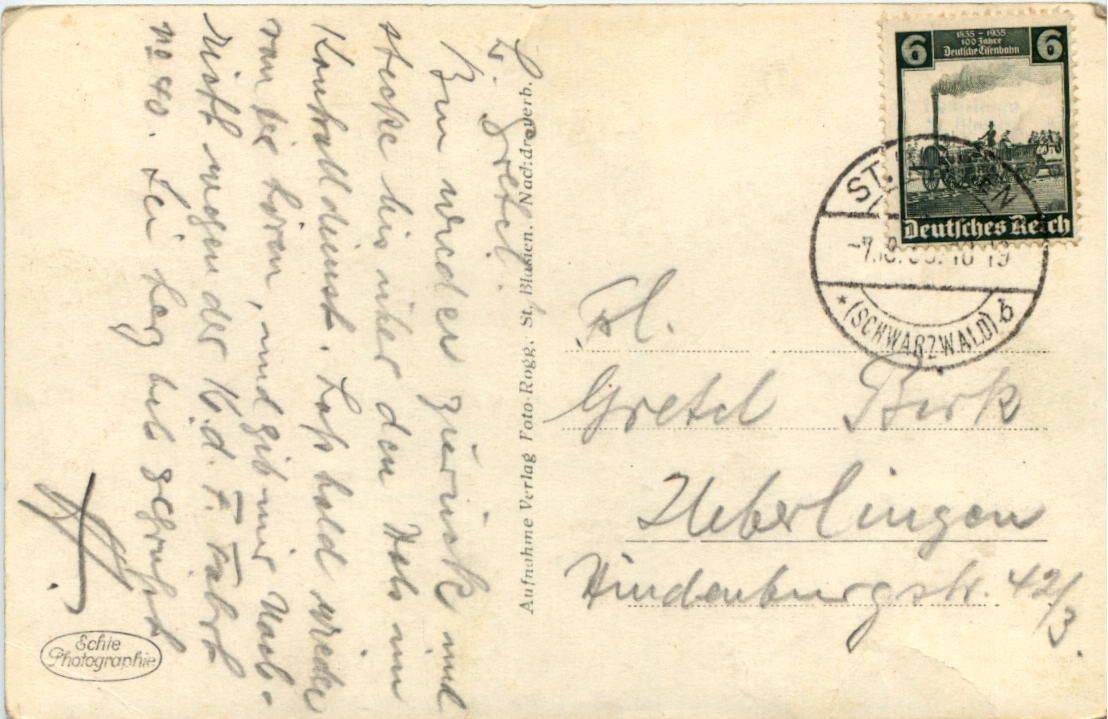 L. Gretel.
Bin wieder zurück und
stecke bis über den Hals im
Kontrolldienst. Laß bald wieder
von dir hören, und gib mir Nach-
richt wegen der K.d.F. Fahrt
No 40. Sei herzl. gegrüßt
Aufnahme Verlag Foto-Rogg, St. Blasien. Nachdr. verb.
Echte
Photographie
6 1835 - 1935 6
100 Jahre
Deutsche Eisenbahn
Deutsches Reich
ST.
(SCHWARZWALD) b
Frl.
Gretel Birk
Ueberlingen
Hindenburgstr. 42/3.